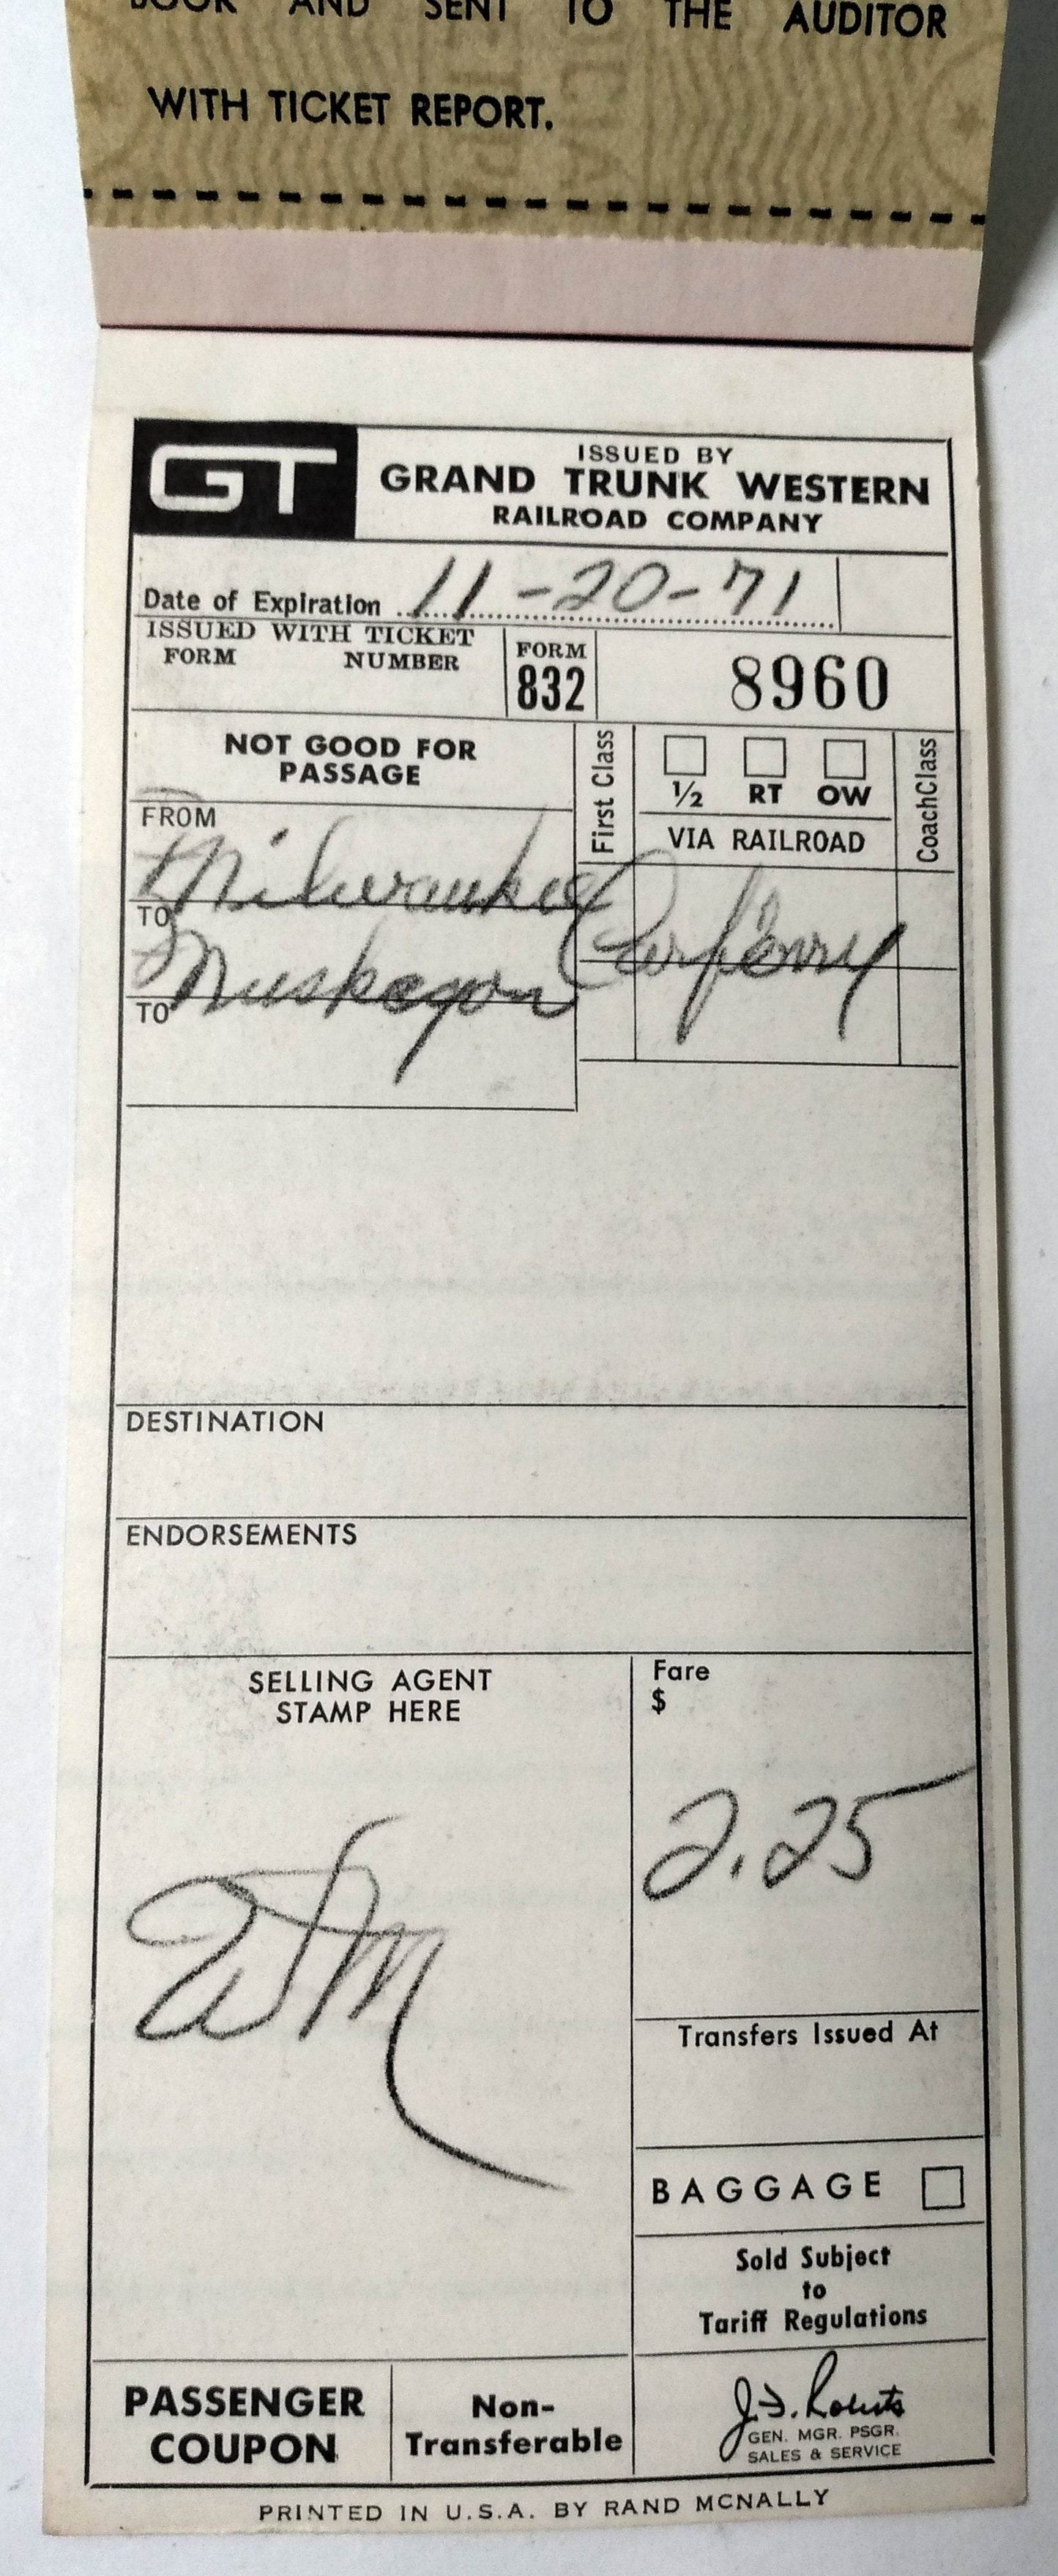 BOOK AND SENT TO THE AUDITOR
WITH TICKET REPORT.
GT
ISSUED BY
GRAND TRUNK WESTERN
RAILROAD COMPANY
Date of Expiration 11-20-71
ISSUED WITH TICKET
FORM NUMBER
FORM
832
8960
NOT GOOD FOR
PASSAGE
First Class
1/2 RT OW
VIA RAILROAD
CoachClass
FROM
Milwaukee
TO
Muskegon
Carferry
TO
DESTINATION
ENDORSEMENTS
SELLING AGENT
STAMP HERE
Fare
$
2.25
Transfers Issued At
BAGGAGE
Sold Subject
to
Tariff Regulations
PASSENGER
COUPON
Non-
Transferable
GEN. MGR. PSGR.
SALES & SERVICE
PRINTED IN U.S.A. BY RAND MCNALLY